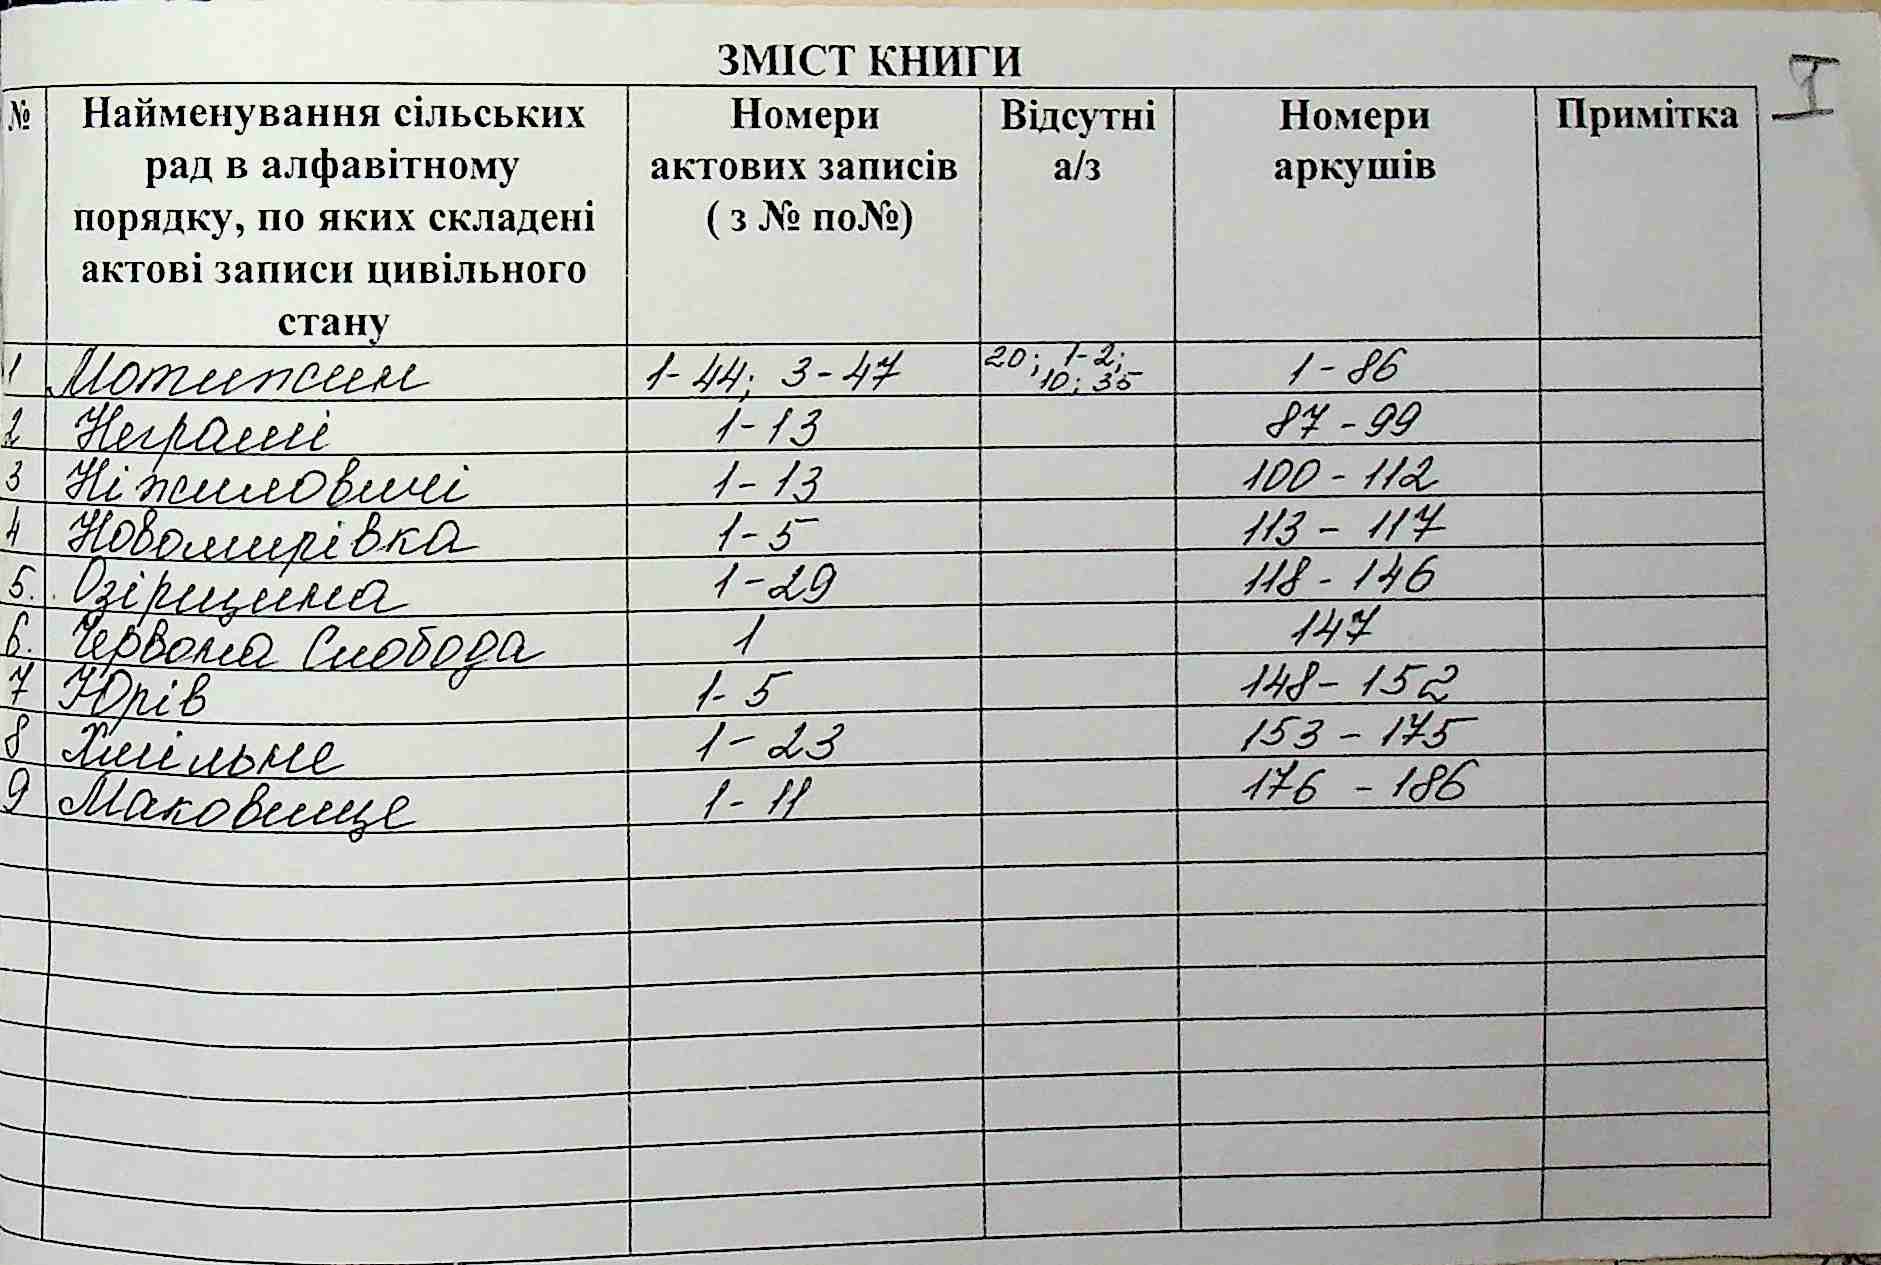 ЗМІСТ КНИГИ
I
№ Найменування сільських рад в алфавітному порядку, по яких складені актові записи цивільного стану Номери актових записів ( з № по№) Відсутні а/з Номери аркушів Примітка
1 Мотижин 1-44; 3-47 20; 1-2; 10; 35 1-86
2 Неграші 1-13 87-99
3 Ніжиловичі 1-13 100-112
4 Новомирівка 1-5 113-117
5. Озірщина 1-29 118-146
6. Червона Слобода 1 147
7 Юрів 1-5 148-152
8 Хмільне 1-23 153-175
9 Маковище 1-11 176-186